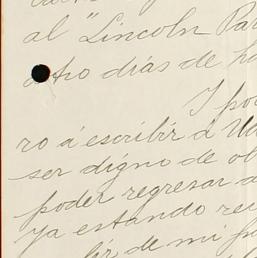 al "Lincoln Par
otro diás de ha
I po
ro á escribir á Ud
ser digno de ob
poder regresar a
ya estando re
de mi p